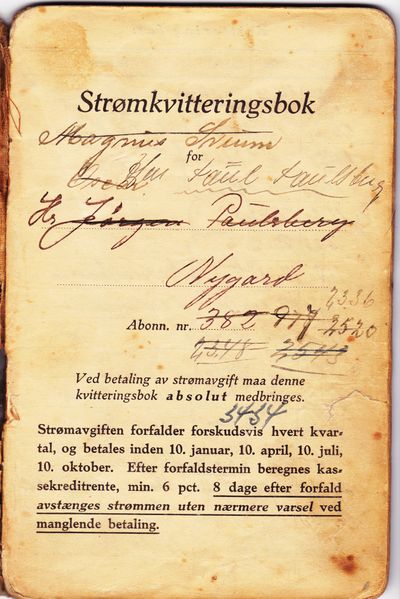 Strømkvitteringsbok
Magnus
for
Paul Paulsberg
Hr Jørgen Paulsberg
Nygard
2336
Abonn. nr. 382 917 2520
Ved betaling av strømavgift maa denne
kvitteringsbok absolut medbringes.
3434
Strømavgiften forfalder forskudsvis hvert kvar-
tal, og betales inden 10. januar, 10. april, 10. juli,
10. oktober. Efter forfaldstermin beregnes kas-
sekreditrente, min. 6 pct. 8 dage efter forfald
avstænges strømmen uten nærmere varsel ved
manglende betaling.